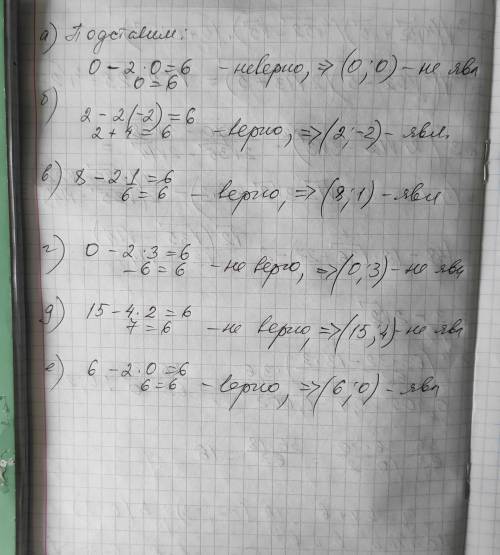 а) Подставим:
0 - 2 · 0 = 6 - неверно, => (0; 0) - не явл
0 = 6
б) 2 - 2(-2) = 6
2 + 4 = 6 - верно, => (2; -2) - явл.
в) 8 - 2·1 = 6
6 = 6 - верно, => (8; 1) - явл
г) 0 - 2 · 3 = 6
- 6 = 6 - не верно, => (0; 3) - не явл
д) 15 - 4 · 2 = 6
7 = 6 - не верно, => (15; 4) - не явл
е) 6 - 2 · 0 = 6
6 = 6 - верно, => (6; 0) - явл